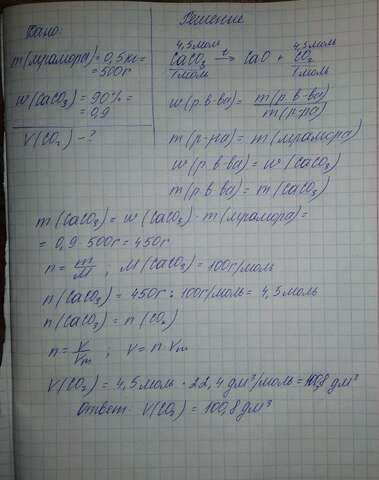 Дано:
m(мрамора)=0,5кг=
=500г
w(CaCO₃)=90%=
=0,9
V(CO₂)-?
Решение
4,5моль 4,5моль
CaCO₃ t→ CaO + CO₂
1моль 1моль
w(р.в-ва) = m(р.в-ва)/m(р-ра)
m(р-ра) = m(мрамора)
w(р.в-ва) = w(CaCO₃)
m(р.в-ва) = m(CaCO₃)
m(CaCO₃) = w(CaCO₃)·m(мрамора)=
= 0,9·500г=450г
n=m/M; M(CaCO₃)=100г/моль
n(CaCO₃) = 450г:100г/моль= 4,5моль
n(CaCO₃) = n(CO₂)
n=V/Vm; V=n·Vm
V(CO₂) = 4,5моль·22,4дм³/моль=100,8дм³
Ответ: V(CO₂) = 100,8дм³